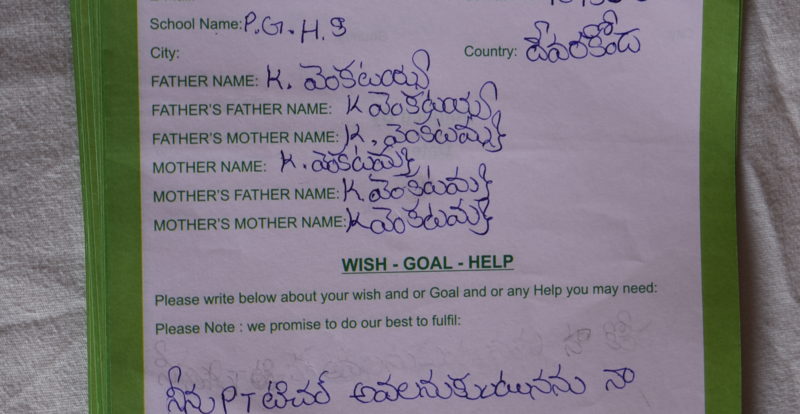 School Name: P.G.H.S
City: Country: దేవరకొండ
FATHER NAME: K. వెంకటయ్య
FATHER'S FATHER NAME: K వెంకటయ్య
FATHER'S MOTHER NAME: K. వెంకటమ్మ
MOTHER NAME: K. వెంకటమ్మ
MOTHER'S FATHER NAME: K. వెంకటమ్మ
MOTHER'S MOTHER NAME: K వెంకటమ్మ
WISH - GOAL - HELP
Please write below about your wish and or Goal and or any Help you may need:
Please Note : we promise to do our best to fulfil:
నేను PT టిచర్ అవలనుకుంటునను నా